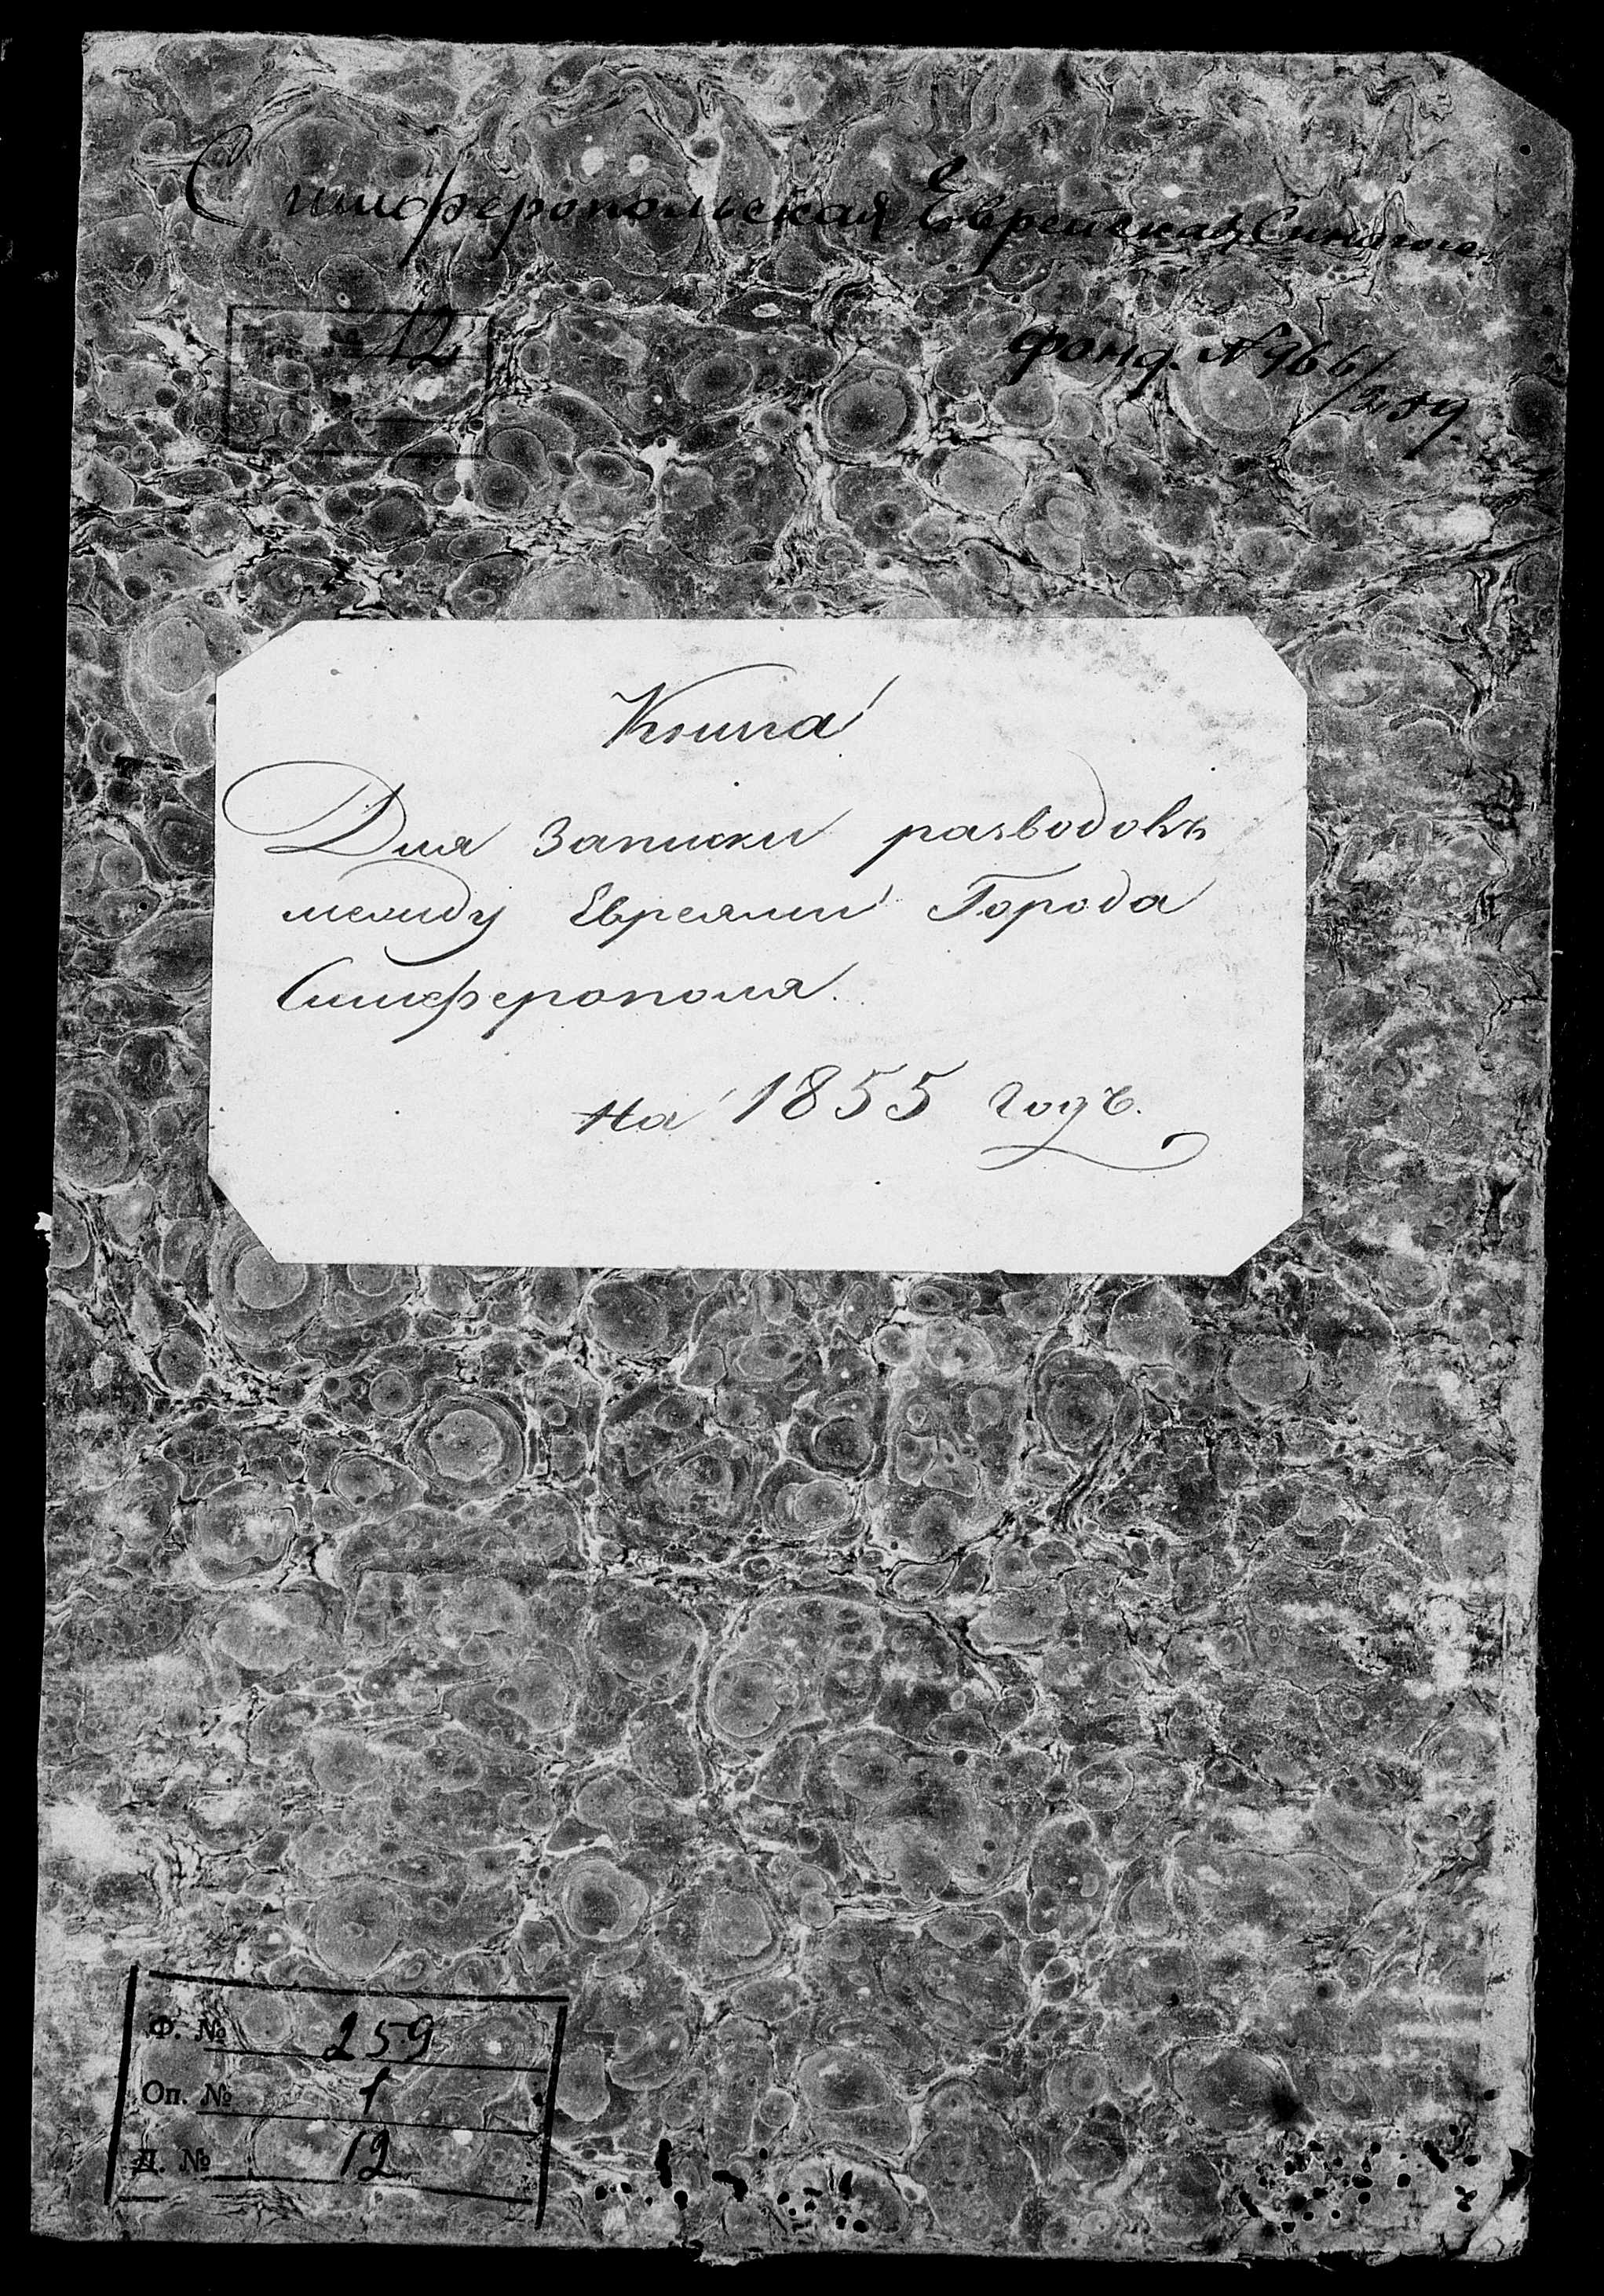 Симферопольская Еврейская Синагога
12
Фонд. № 966/259
Книга
Для Записки разводовъ
между Евреями Города
Симферополя.
На 1855 годъ.
Ф. № 259
Оп. № 1
Д. № 12